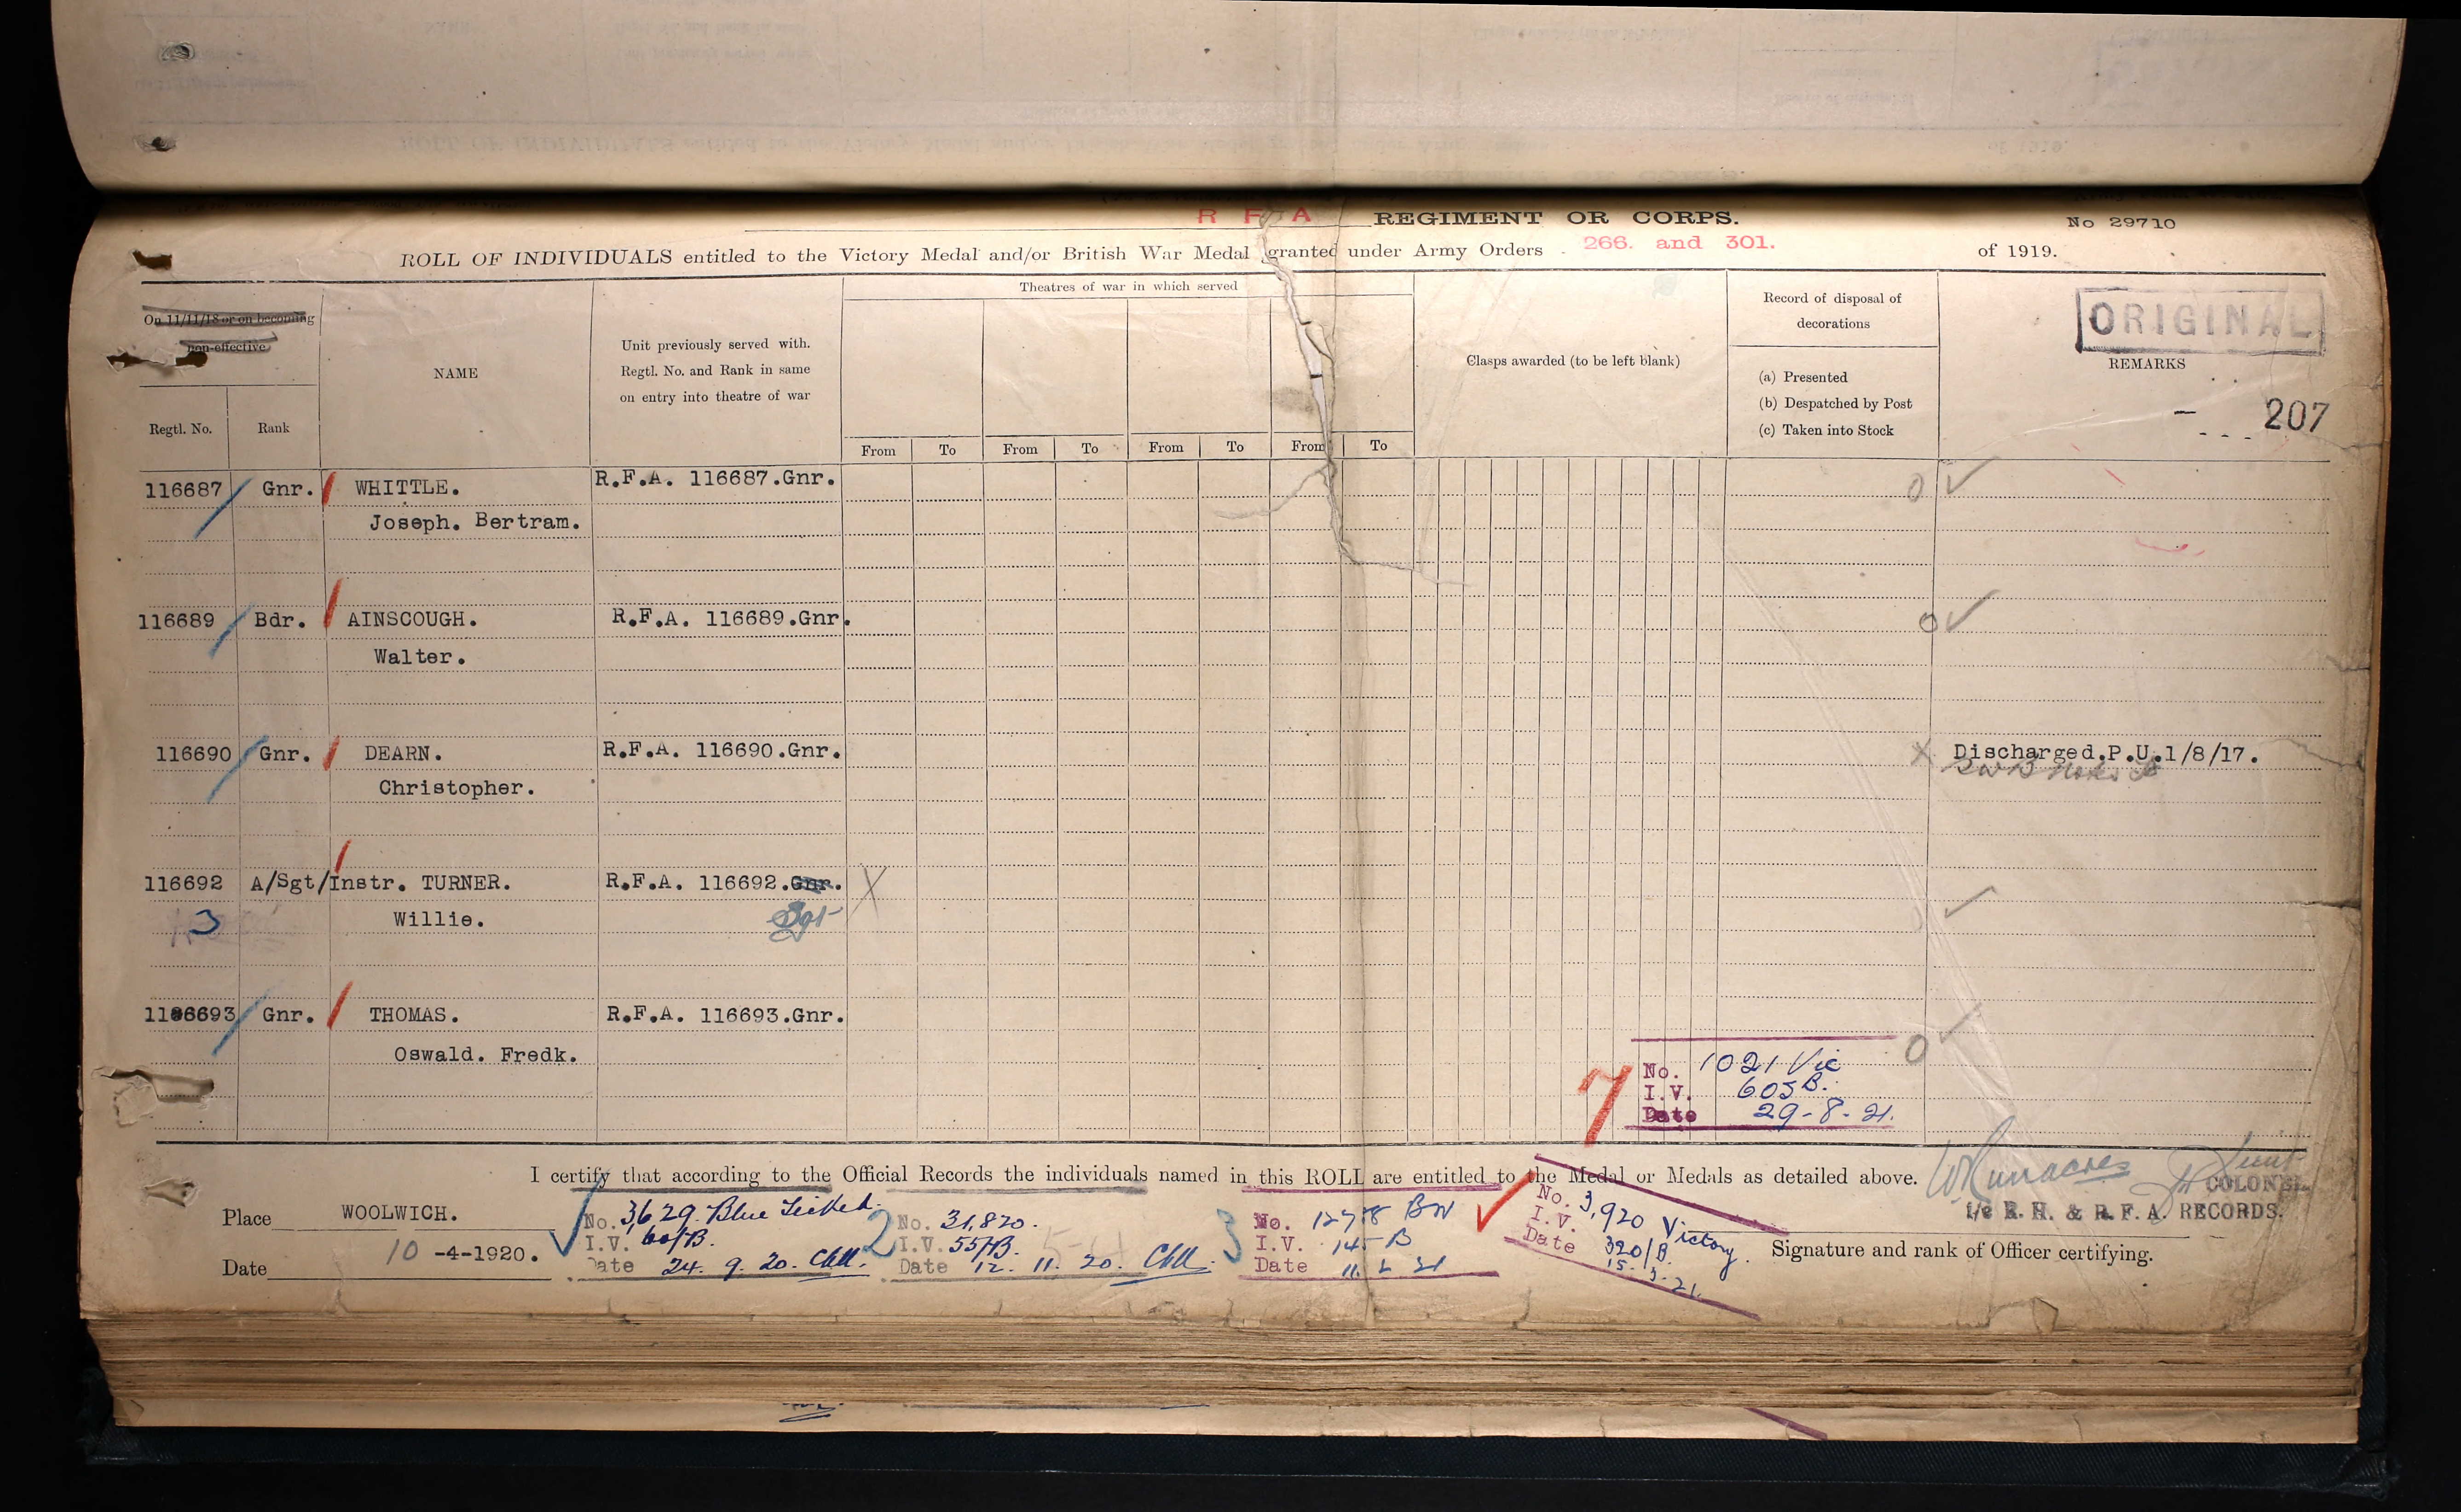 R F A REGIMENT OR CORPS.
No 29710
ROLL OF INDIVIDUALS entitled to the Victory Medal and/or British War Medal granted under Army Orders 266. and 301. of 1919.
On 11/11/18 or on becoming
non-effective
Regt. No.
Rank
NAME
Unit previously served with.
Regtl. No. and Rank in same
on entry into theatre of war
Theatres of war in which served
From To From To From To From To
Clasps awarded (to be left blank)
Record of disposal of
decorations
(a) Presented
(b) Despatched by Post
(c) Taken into Stock
ORIGINAL
REMARKS
207
116687 Gnr. WHITTLE. R.F.A. 116687.Gnr.
Joseph. Bertram.
116689 Bdr. AINSCOUGH. R.F.A. 116689.Gnr.
Walter.
116690 Gnr. DEARN. R.F.A. 116690.Gnr. X Discharged.P.U.1/8/17.
Christopher.
116692 A/Sgt/Instr. TURNER. R.F.A. 116692.Gnr. X
3 Willie. Sgt
116693 Gnr. THOMAS. R.F.A. 116693.Gnr.
Oswald. Fredk.
7
No. 1021 Vic
I.V. 605 B.
Date 29-8-21.
I certify that according to the Official Records the individuals named in this ROLL are entitled to the Medal or Medals as detailed above.
Place WOOLWICH.
Date 10-4-1920.
No. 3629. Blue Ticket.
I.V. 60/B.
Date 24. 9. 20.
2
No. 31,820.
I.V. 55/B.
Date 12. 11. 20.
3
No. 12778 BW
I.V. 145 B
Date 11. 2 21
No. 3,920 Victory.
I.V. 320/B.
Date 15-3-21.
COLONEL
i/c R. H. & R. F. A. RECORDS.
Signature and rank of Officer certifying.